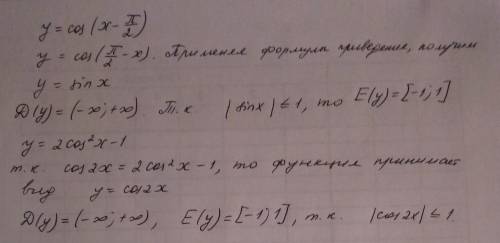 y = cos(x - π/2)
y = cos(π/2 - x). Применяя формулы приведения, получим
y = sin x
D(y) = (-∞; +∞). Т.к. |sin x| ≤ 1, то E(y) = [-1; 1]
y = 2cos²x - 1
т.к. cos 2x = 2cos²x - 1, то функция принимает
вид y = cos 2x
D(y) = (-∞; +∞), E(y) = [-1; 1], т.к. |cos 2x| ≤ 1.